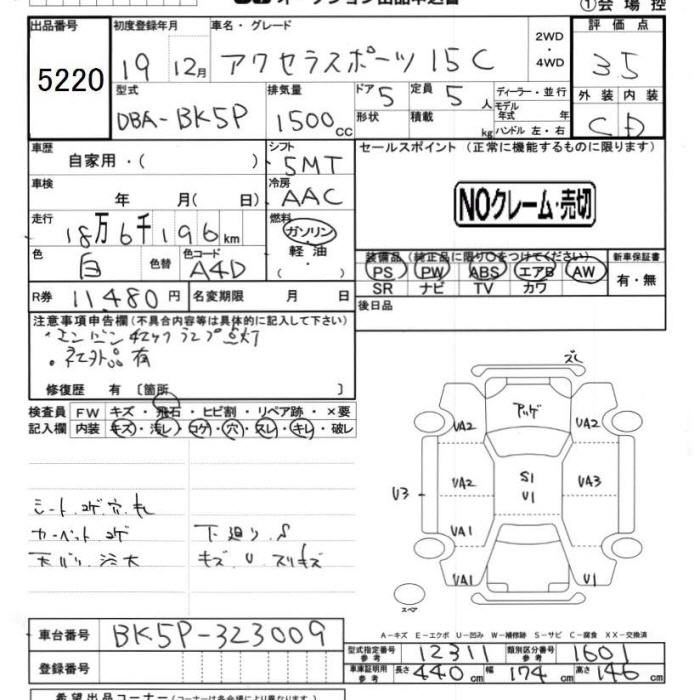 ①会場控
出品番号 初度登録年月 車名・グレード 評価点
5220 19 12月 アクセラスポーツ 15C 2WD・4WD 3.5
型式 排気量 ドア 定員 ディーラー・並行 外装 内装
DBA-BK5P 1500cc 5 5人 モデル年式 年 C D
形状 積載 kg ハンドル 左・右
車歴 シフト セールスポイント (正常に機能するものに限ります)
自家用・( ) 5MT
車検 冷房
年 月( 日) AAC NOクレーム・売切
走行 燃料
18万6千196km ガソリン・軽油・( )
色 色替 色コード 装備品(純正品に限り○をつけてください) 新車保証書
白 A4D PS PW ABS エアB AW 有・無
SR ナビ TV カワ
R券 11,480円 名変期限 月 日 後日品
注意事項申告欄(不具合内容等は具体的に記入して下さい)
・エンジンチェックランプ点灯
・社外品有
修復歴 有 〔箇所 〕
検査員 FW キズ・飛石・ヒビ割・リペア跡・×要
記入欄 内装 キズ・汚レ・コゲ・穴・スレ・キレ・破レ
ズレ
アッゲ
UA2 UA2
UA2 S1 UA3
U3 U1
UA1
UA1 U1
スペア
シート コゲ 穴
カーペット コゲ 下廻り S
キズ U スリキズ
A−キズ E−エクボ U−凹み W−補修跡 S−サビ C−腐食 XX−交換済
車台番号 BK5P-323009
型式指定番号 参考 12311 類別区分番号 参考 1601
登録番号 車庫証明用 参考 長さ 440cm 幅 174cm 高さ 146cm
希望出品コーナー